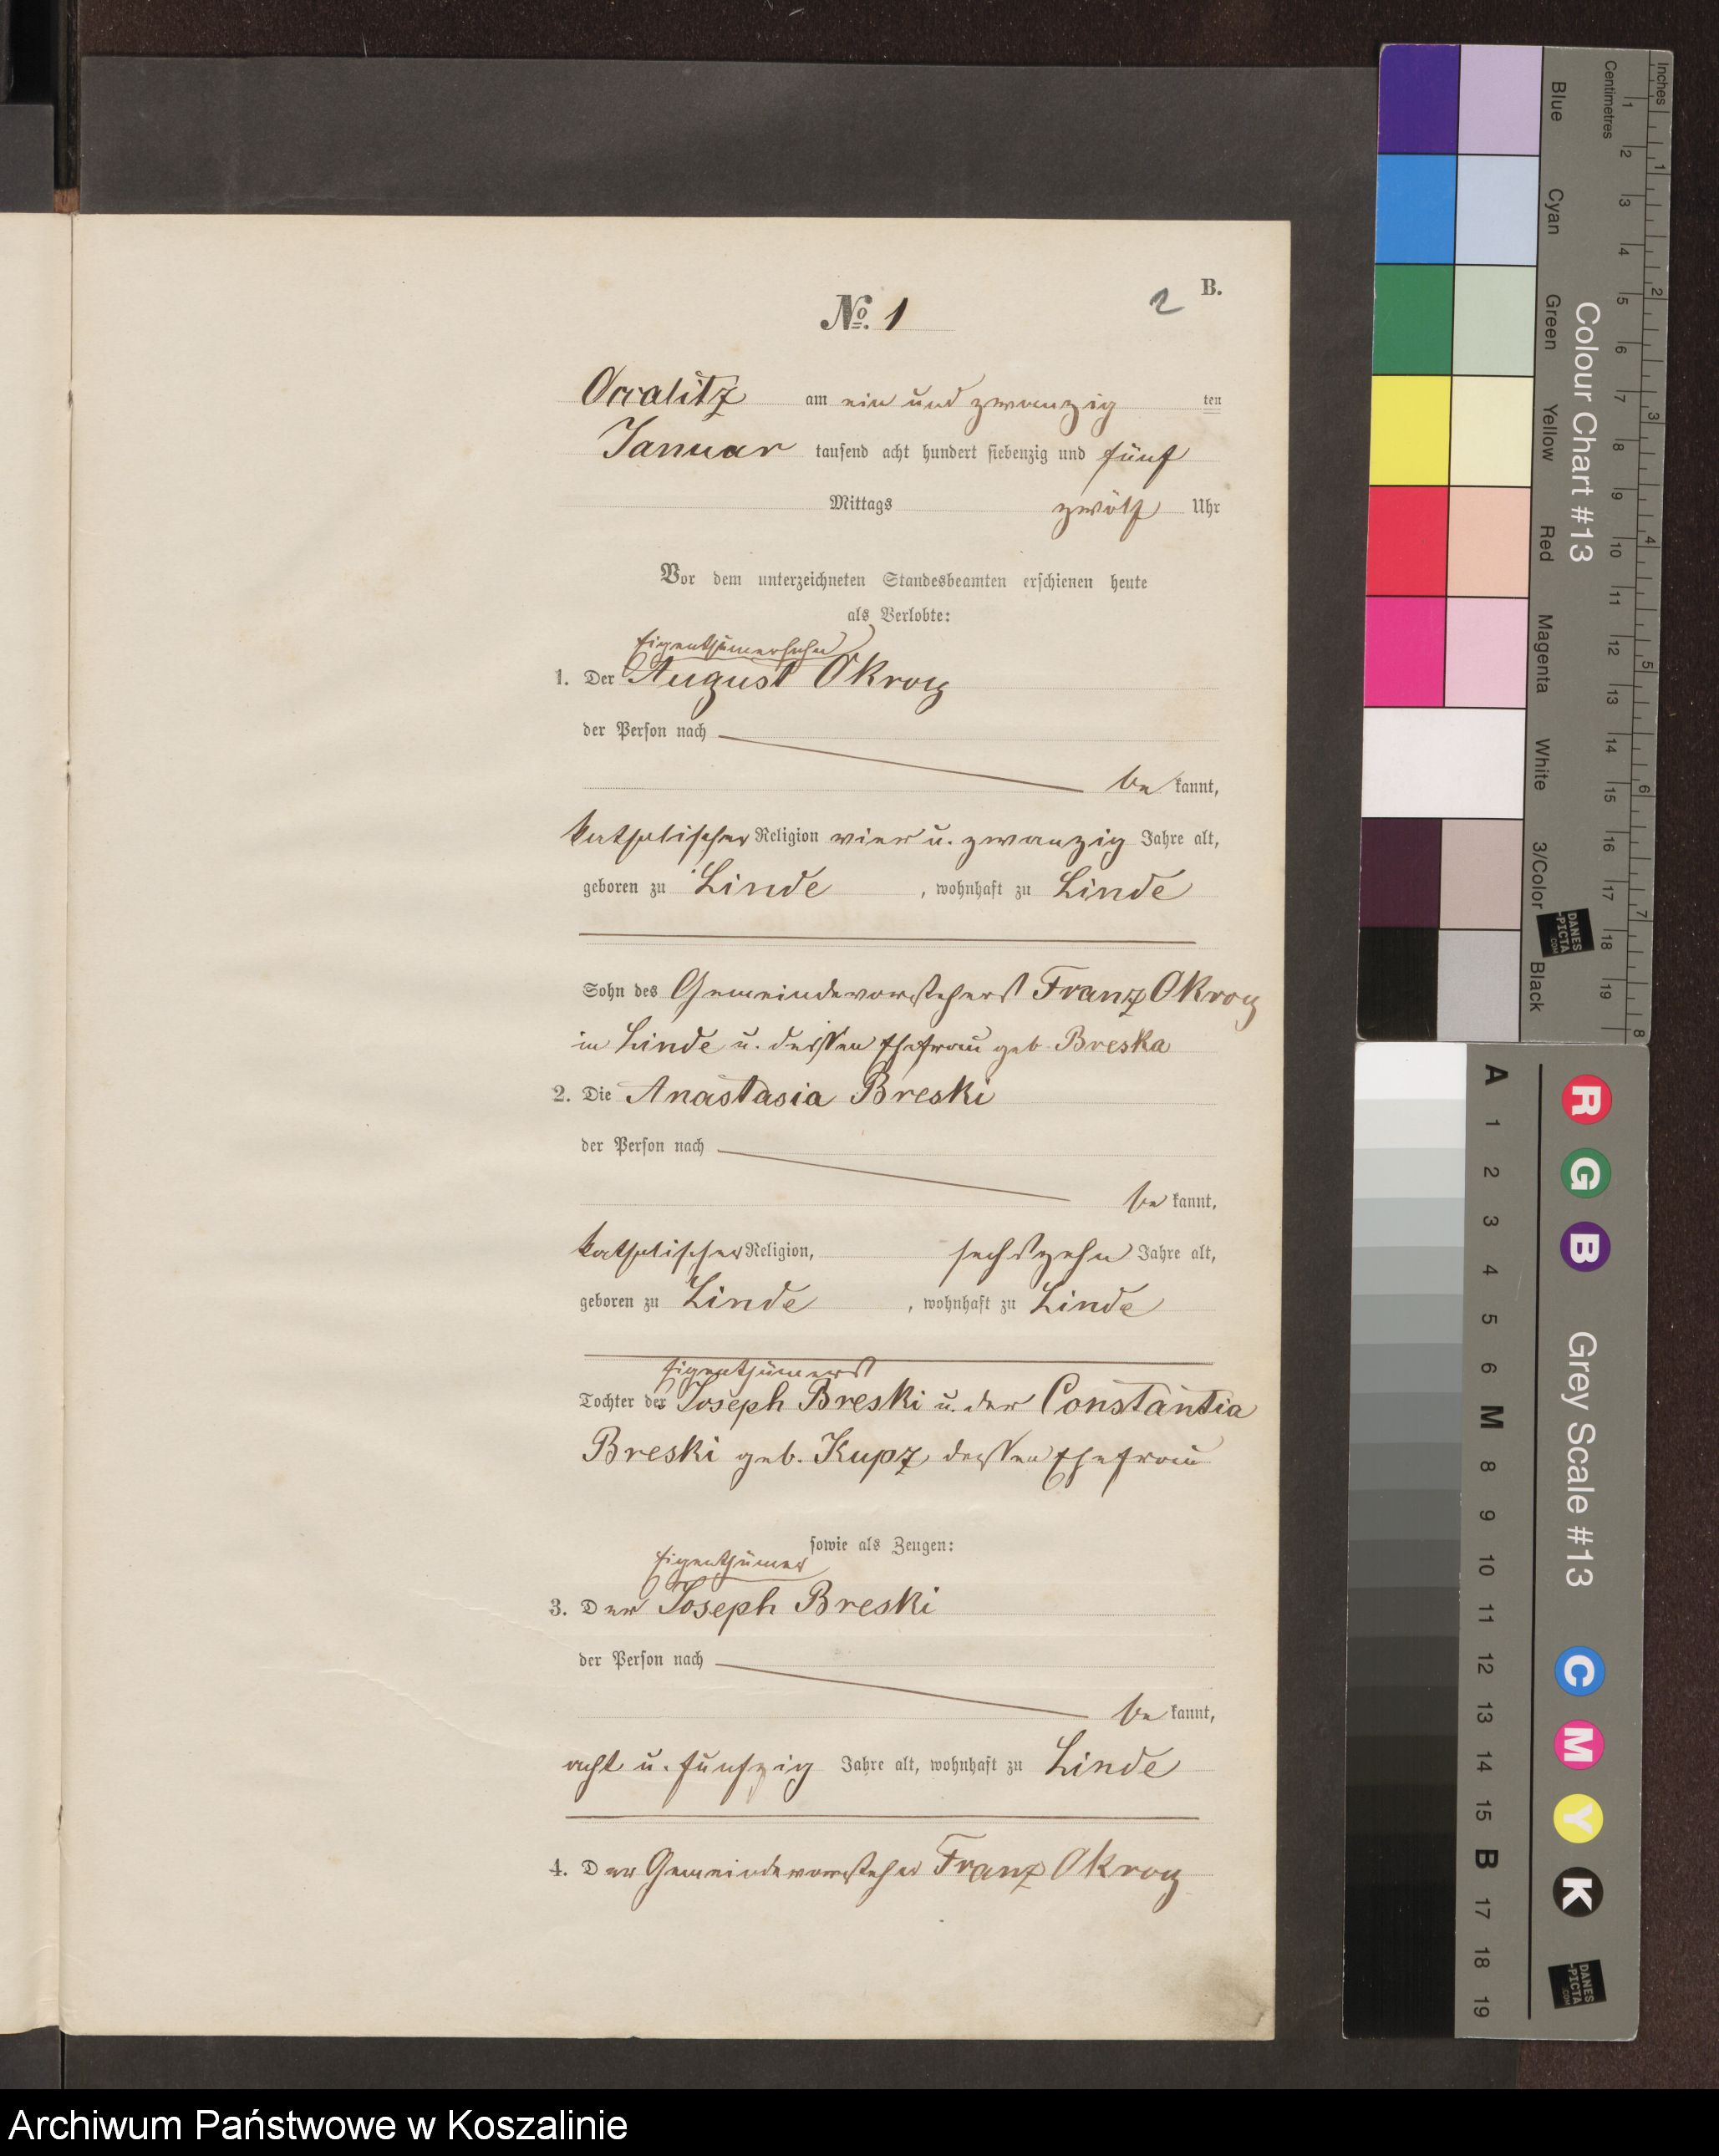 B.
2
No. 1
Occalitz am ein und zwanzig ten
Januar tausend acht hundert siebenzig und fünf
Mittags zwölf Uhr
Vor dem unterzeichneten Standesbeamten erschienen heute
als Verlobte:
Eigenthümersohn
1. Der August Okroy
der Person nach
be kannt,
katholischer Religion vier u. zwanzig Jahre alt,
geboren zu Linde , wohnhaft zu Linde
Sohn des Gemeindevorstehers Franz Okroy
in Linde u. dessen Ehefrau geb. Breska
2. Die Anastasia Breski
der Person nach
be kannt,
katholischer Religion, sechszehn Jahre alt,
geboren zu Linde , wohnhaft zu Linde
Eigenthümers
Tochter des Joseph Breski u. der Constantia
Breski geb. Kupz, dessen Ehefrau
sowie als Zeugen:
Eigenthümer
3. Der Joseph Breski
der Person nach
be kannt,
acht u. funfzig Jahre alt, wohnhaft zu Linde
4. Der Gemeindevorsteher Franz Okroy
Inches
Centimetres
Colour Chart #13
Blue
Cyan
Green
Yellow
Red
Magenta
White
3/Color
Black
1 2 3 4 5 6 7 8 9 10 11 12 13 14 15 16 17 18 19
1 2 3 4 5 6 7 8
DANES
-PICTA
.COM
Grey Scale #13
R G B C M Y K
A 1 2 3 4 5 6 M 8 9 10 11 12 13 14 15 B 17 18 19
DANES
-PICTA
.COM
Archiwum Państwowe w Koszalinie